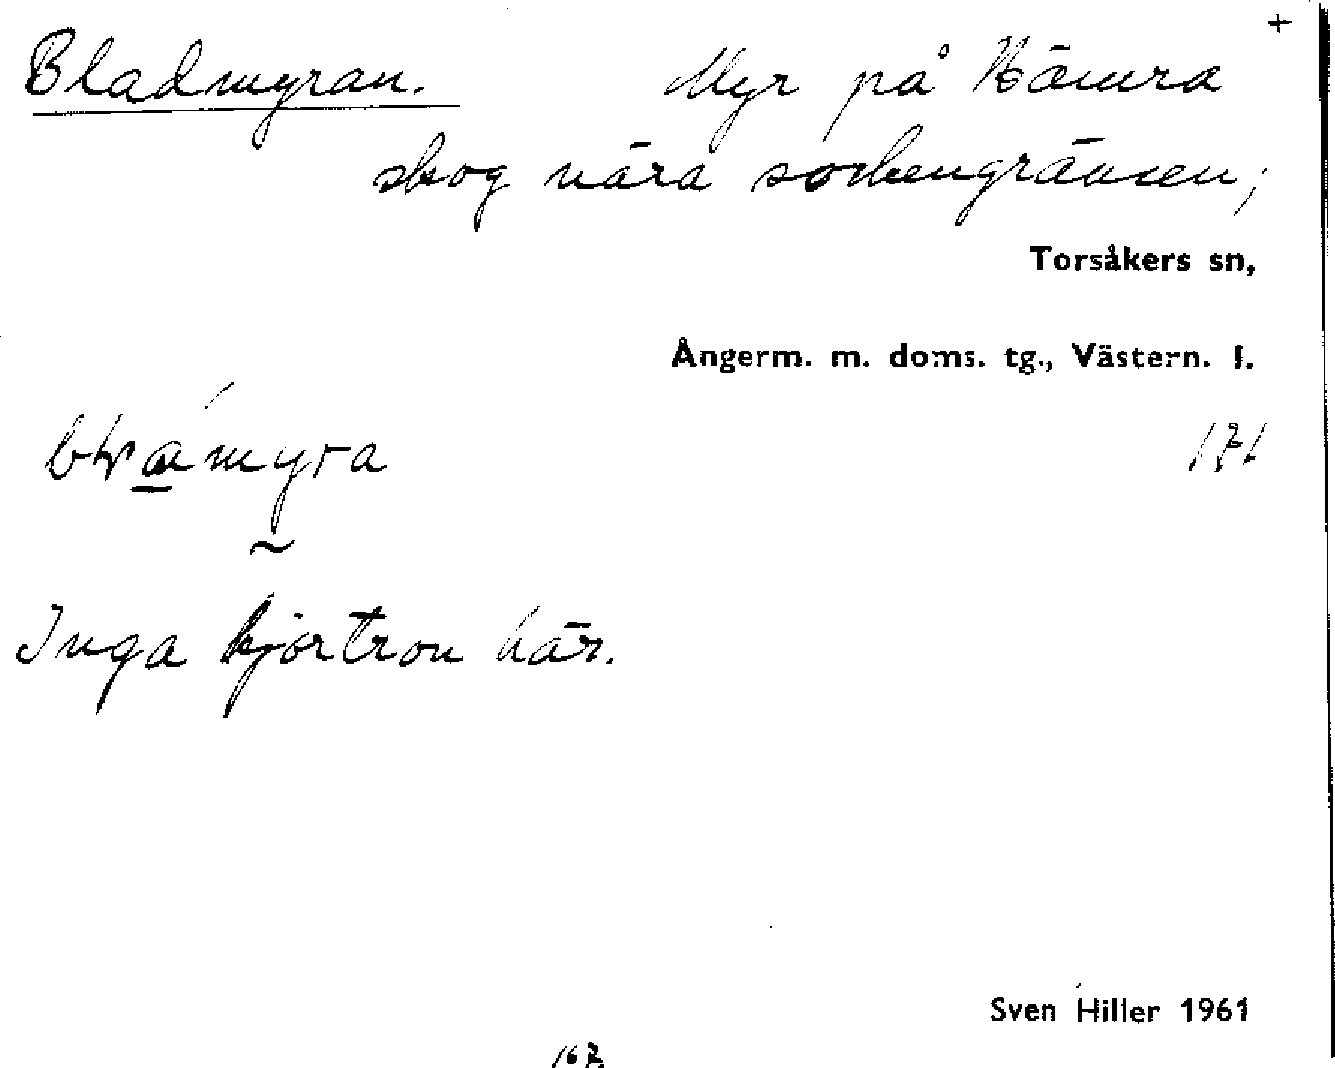 +
Bladmyran. Myr på Hämra
skog nära sockengränsen,
Torsåkers sn,
Ångerm. m. doms. tg., Västern. l.
171
Inga hjortron här.
Sven Hiller 1961
167